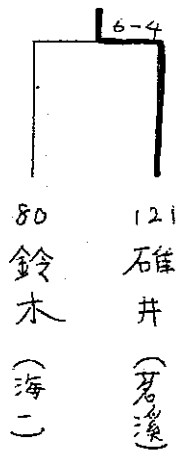 6-4
121
碓井
（茗溪）
80
鈴木
（海二）